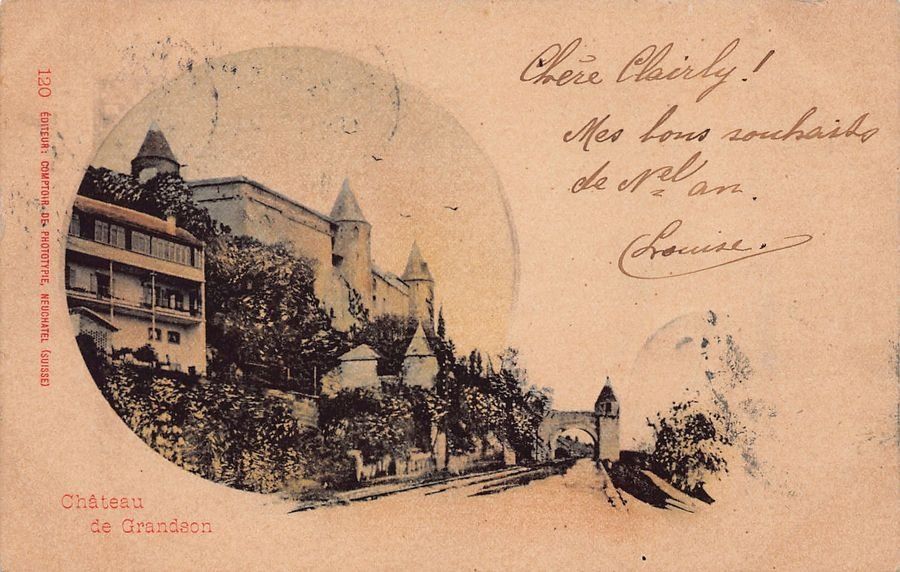 Chère Clairly!
Mes bons souhaits
de Nel an
Louise.
120 ÉDITEUR: COMPTOIR DE PHOTOTYPIE, NEUCHATEL (SUISSE)
Château
de Grandson